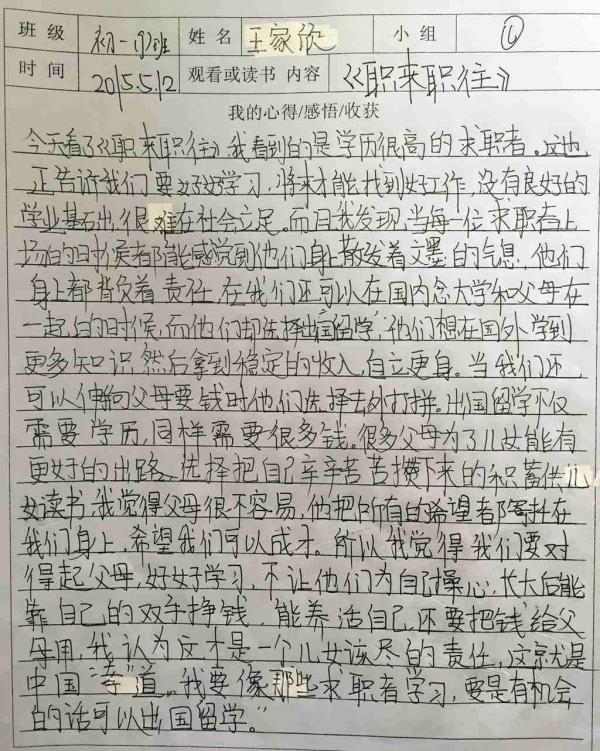 班级 初一(9)班 姓名 王家欣 小组
时间 2015.5.12 观看或读书内容 《职来职往》
我的心得/感悟/收获
今天看了《职来职往》我看到的是学历很高的求职者。这也
正告诉我们要好好学习,将来才能找到好工作,没有良好的
学业基石出,很难在社会立足。而且我发现,当每一位求职者上
场的时候者都能感觉到他们身上散发着文墨的气息,他们
身上都背负着责任,在我们还可以在国内念大学和父母在
一起的时候,而他们却选择出国留学,他们想在国外学到
更多知识,然后拿到稳定的收入,自立更身。当我们还
可以伸向父母要钱时他们选择去外打拼。出国留学不仅
需要学历,同样需要很多钱。很多父母为了儿女能有
更好的出路,选择把自己辛辛苦苦攒下来的积蓄供儿
女读书,我觉得父母很不容易,他把所有的希望都寄托在
我们身上,希望我们可以成才。所以我觉得我们要对
得起父母,好好学习,不让他们为自己操心,长大后能
靠自己的双手挣钱,能养活自己,还要把钱给父
母用,我认为这才是一个儿女该尽的责任,这就是
中国"孝"道。我要像那些求职者学习,要是有机会
的话可以出国留学。"